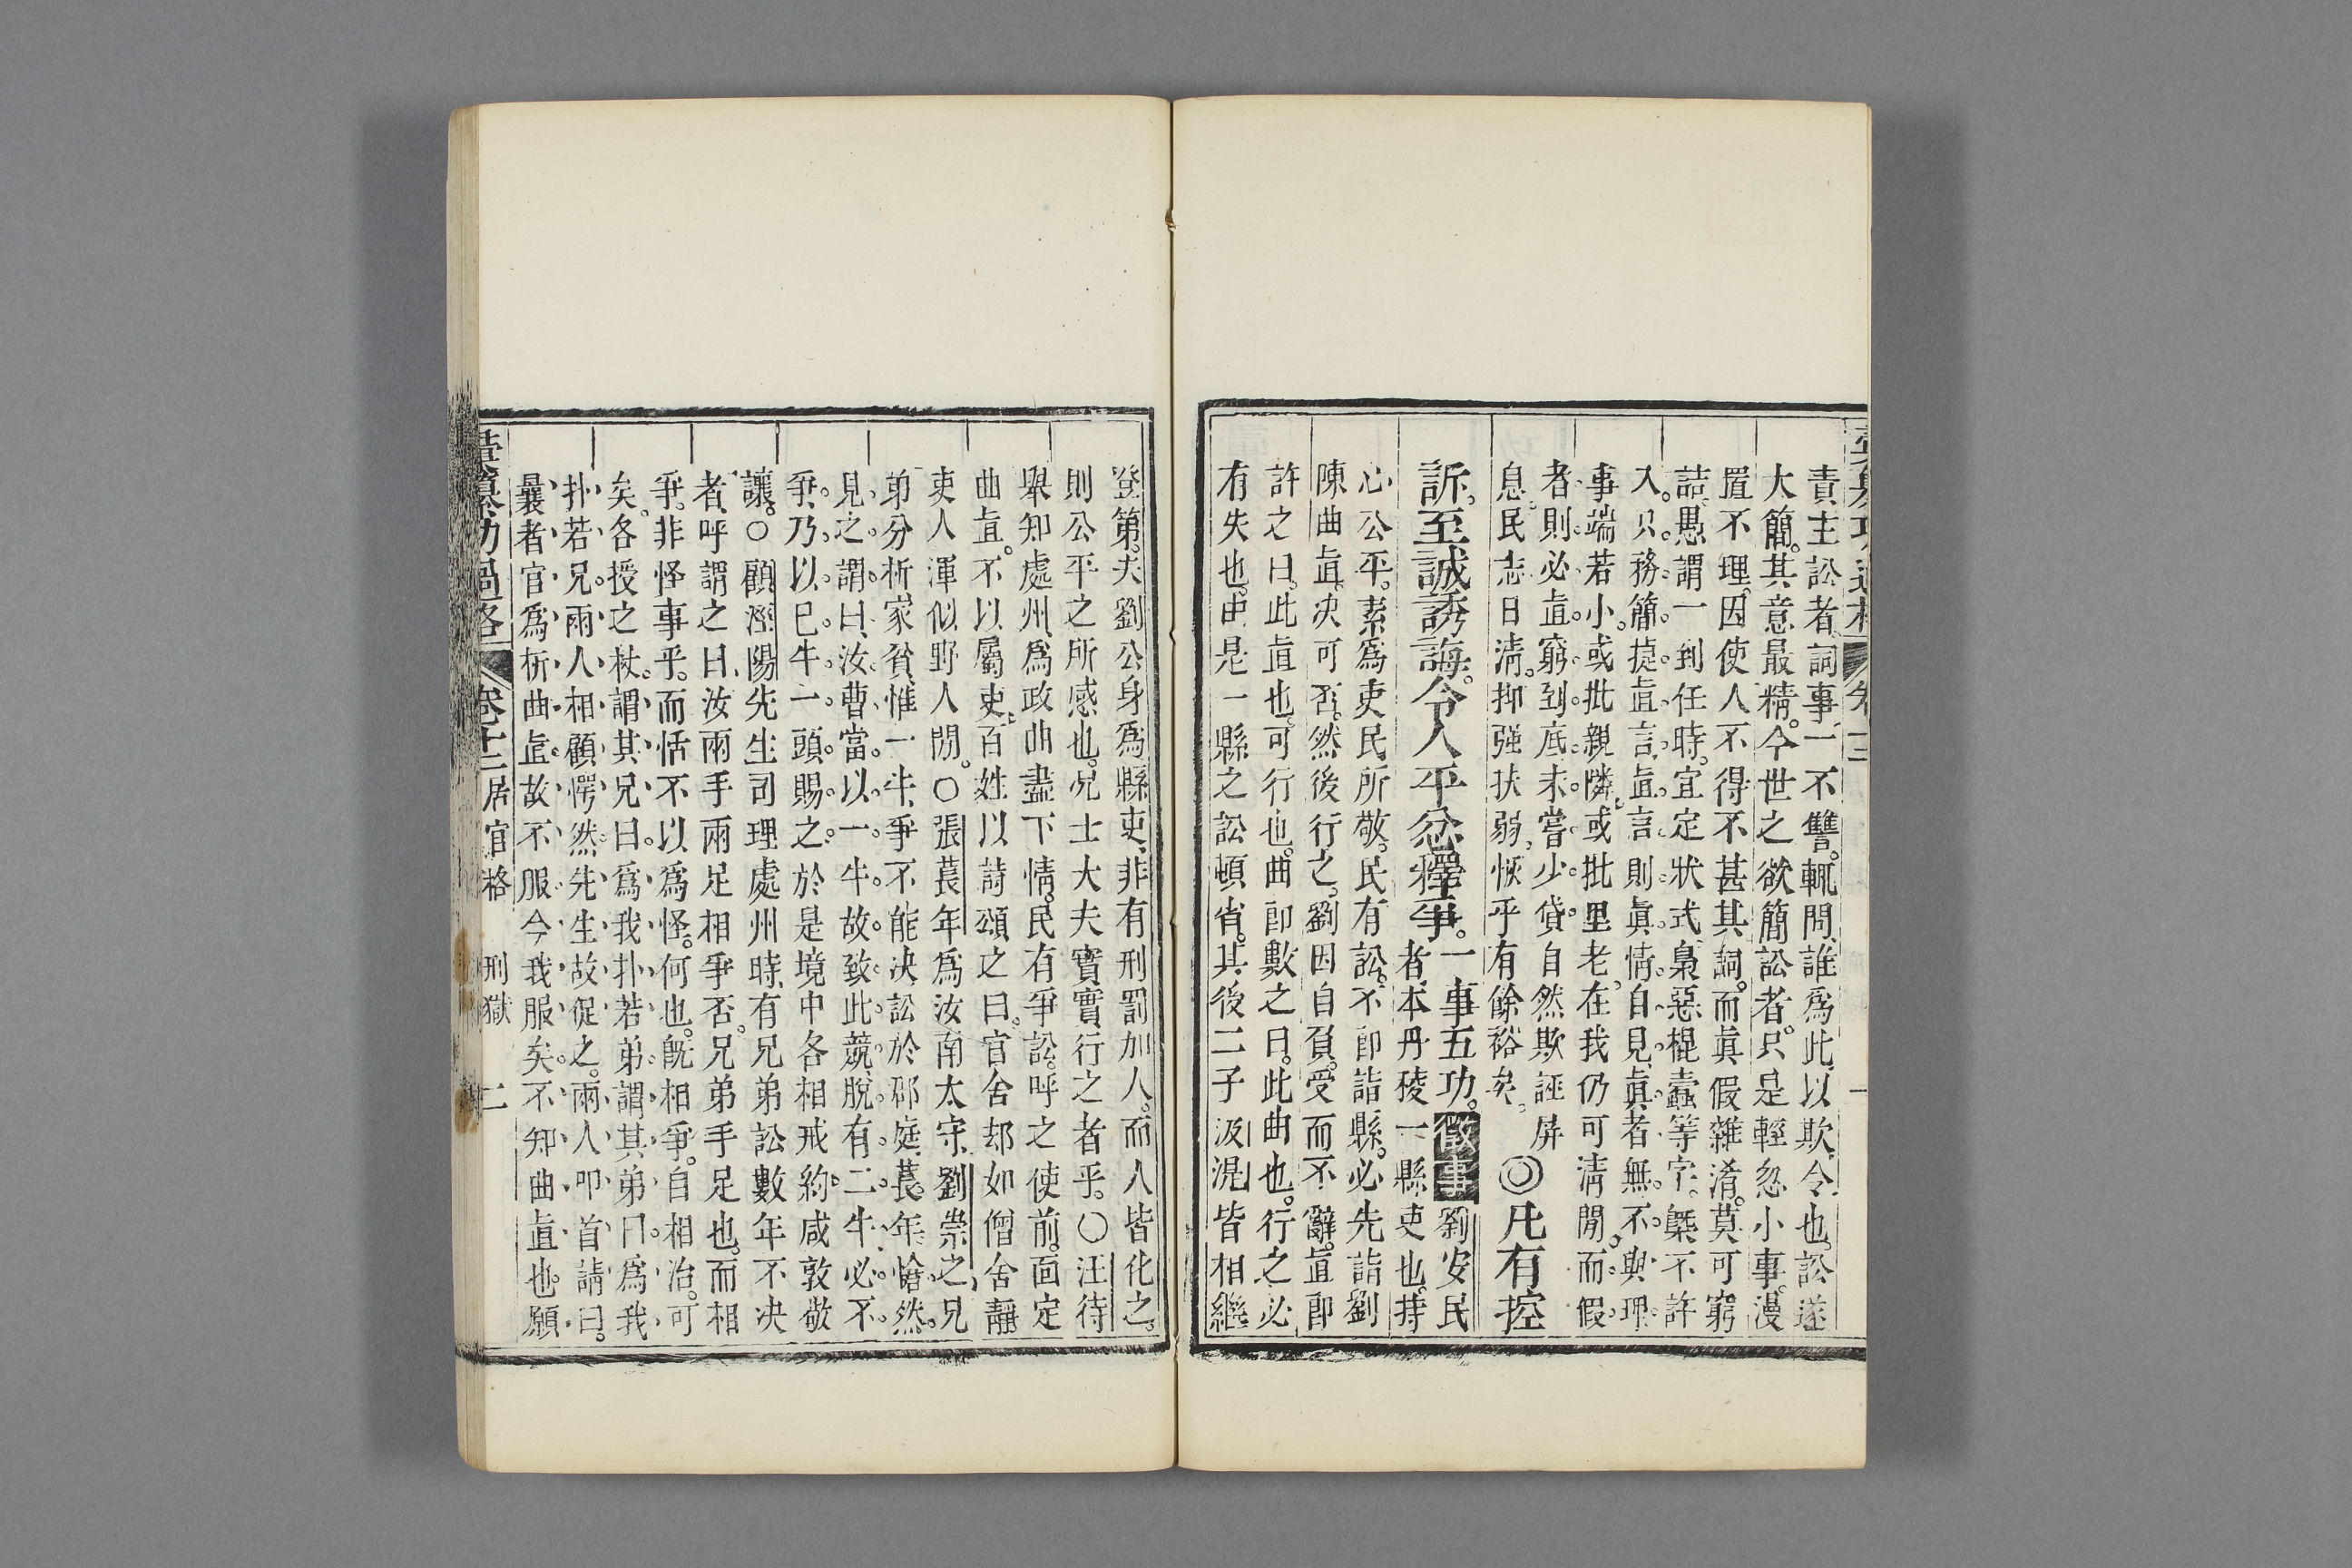 責主訟者詞事一不讐。輒問、誰爲此、以欺令也。訟遂
大簡。其意最精。今世之欲簡訟者。只是輕忽小事。漫
置不理。因使人不得不甚其詞。而眞假雜淆。莫可窮
詰。愚謂一到任時。宜定狀式。梟惡棍蠹等字。槩不許
入。只務簡捷直言。直言則眞情自見。眞者無不與理。
事端若小。或批親隣。或批里老。在我仍可清閒。而假
者。則必直窮到底。未嘗少貸。自然欺誣屏
息。民志日清。抑强扶弱。恢乎有餘裕矣。◎凡有控
訴。至誠誘誨。令人平忿釋爭。一事五功。徵事劉安民
者、本丹稜一縣吏也。持
心公平。素爲吏民所敬。民有訟。不卽詣縣。必先詣劉
陳曲直。决可否。然後行之。劉因自負。受而不辭。直卽
許之曰。此直也。可行也。曲卽數之曰。此曲也。行之必
有失也。由是一縣之訟頓省。其後二子汲混皆相繼
登第。夫劉公身爲縣吏、非有刑罰加人。而人皆化之。
則公平之所感也。况士大夫實實行之者乎。○汪待
舉知處州、爲政曲盡下情。民有爭訟。呼之使前。面定
曲直。不以屬吏。百姓以詩頌之曰。官舍却如僧舍靜
吏人渾似野人閒。○張萇年爲汝南太守、劉崇之兄
弟分析。家貧、惟一牛、爭不能决、訟於郡庭。萇年愴然。
見之。謂曰、汝曹當以一牛。故致此競。脫有二牛、必不
爭。乃以已牛一頭賜之。於是境中各相戒約。咸敦敬
讓。○顧涇陽先生司理處州時、有兄弟訟數年不决
者、呼謂之曰、汝兩手兩足相爭否。兄弟手足也。而相
爭。非怪事乎。而恬不以爲怪。何也。旣相爭。自相治。可
矣。各授之杖。謂其兄曰。爲我扑若弟。謂其弟曰。爲我
扑若兄。兩人相顧愕然。先生故促之。兩人叩首請曰。
曩者官爲析曲直。故不服今我服矣。不知曲直也。願
彙纂功過格 卷十二 居官格 刑獄 二